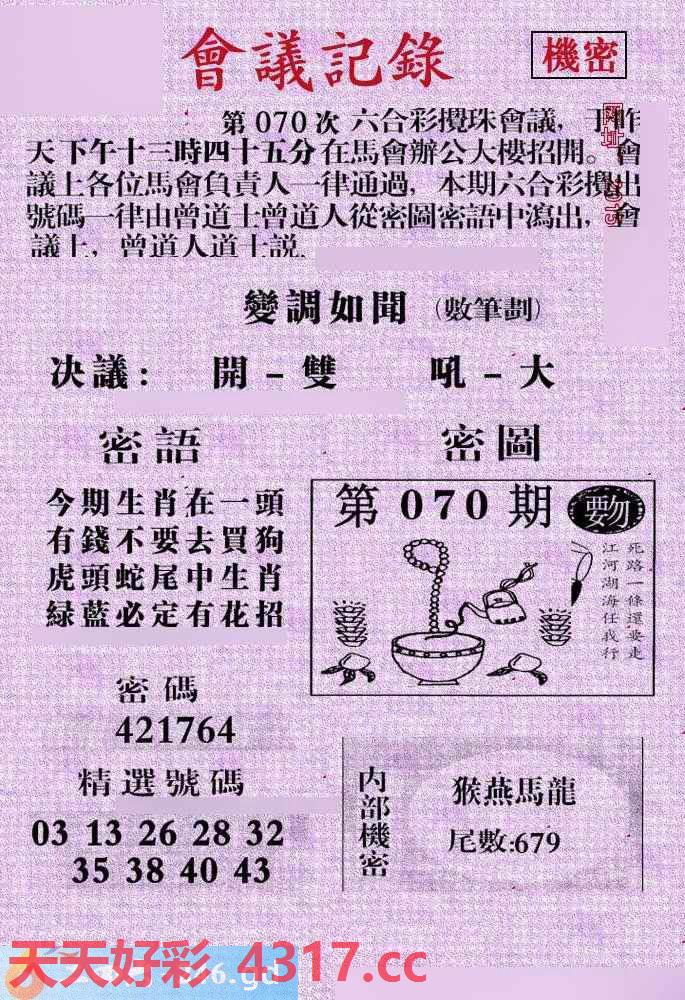 會議記錄
機密
第070次 六合彩攪珠會議，于昨
天下午十三時四十五分在馬會辦公大樓招開。會
議上各位馬會負責人一律通過，本期六合彩攪出
號碼一律由曾道士曾道人從密圖密語中瀉出，會
議上，曾道人道士説
變調如聞（數筆劃）
决議： 開－雙 吼－大
密語
今期生肖在一頭
有錢不要去買狗
虎頭蛇尾中生肖
緑藍必定有花招
密圖
第070期
死路一條還要走
江河湖海任我行
密碼
421764
精選號碼
03 13 26 28 32
35 38 40 43
内部機密
猴燕馬龍
尾數:679
天天好彩 4317.cc